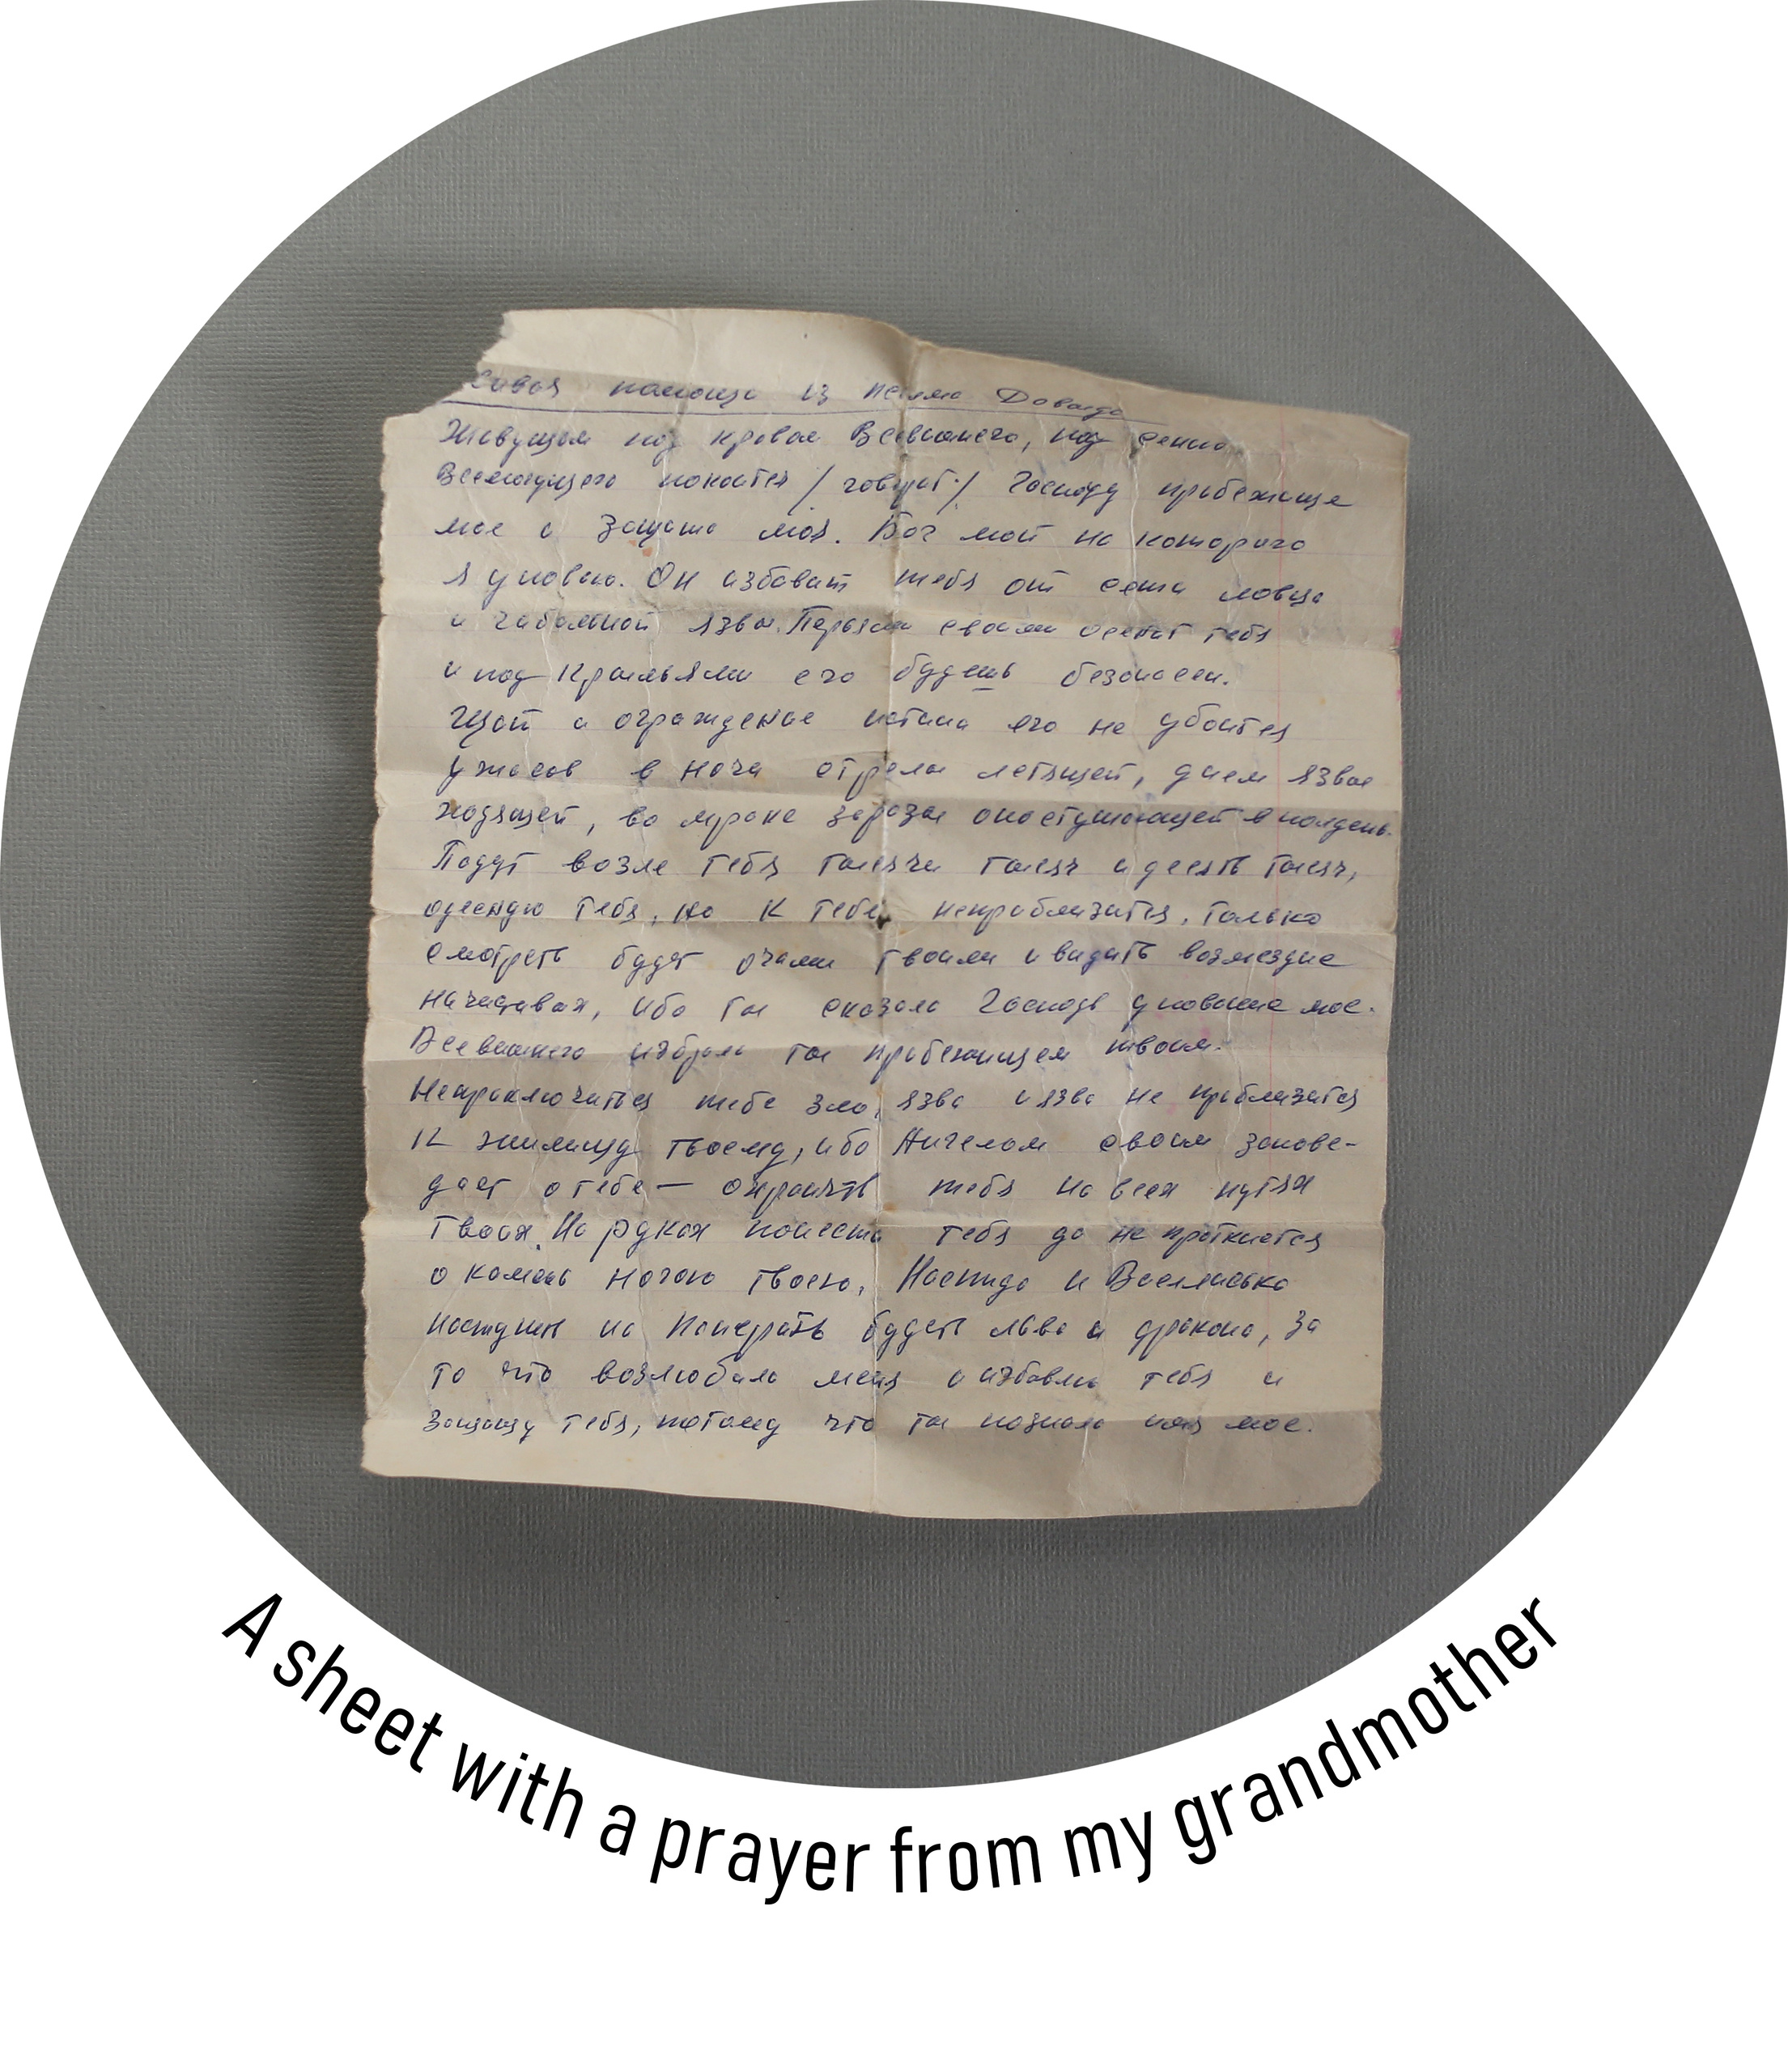 живая помощь из псалма Давида
Живущем под кровом Всевышнего, под сенью
Всемогущего покоится / говорит: / Господу прибежище
мое и Защита моя. Бог мой на которого
я уповаю. Он избавит тебя от сети ловца
и гибельной язвы. Перьями своими осенит тебя
и под Крыльями его будешь безопасен.
Щит и ограждение истина его не убоится
ужасов в ночи стрелы летящей, днем язвы
ходящей, во мраке заразы опустушающей в полдень.
Падут возле тебя тысячи тысяч и десять тысяч,
одесную тебя, но к тебе неприблизится, только
смотреть будет очами твоими и видить возмездие
начистивах, ибо ты сказала Господь упование мое.
Всевышнего избрала ты прибежищем твоим.
Неприключиться тебе зло, язва и язва не приблизится
К жилищу твоему, ибо Ангелам своим запове-
дает о тебе — охранять тебя на всех путях
твоих. На руках понести тебя да не приткнется
о камень ногою твоею, На и
наступит на попирать будеть льва и дракона, за
то что возлюбила меня и избавлю тебя и
защищу тебя, потому что ты познала имя мое.
A sheet with a prayer from my grandmother